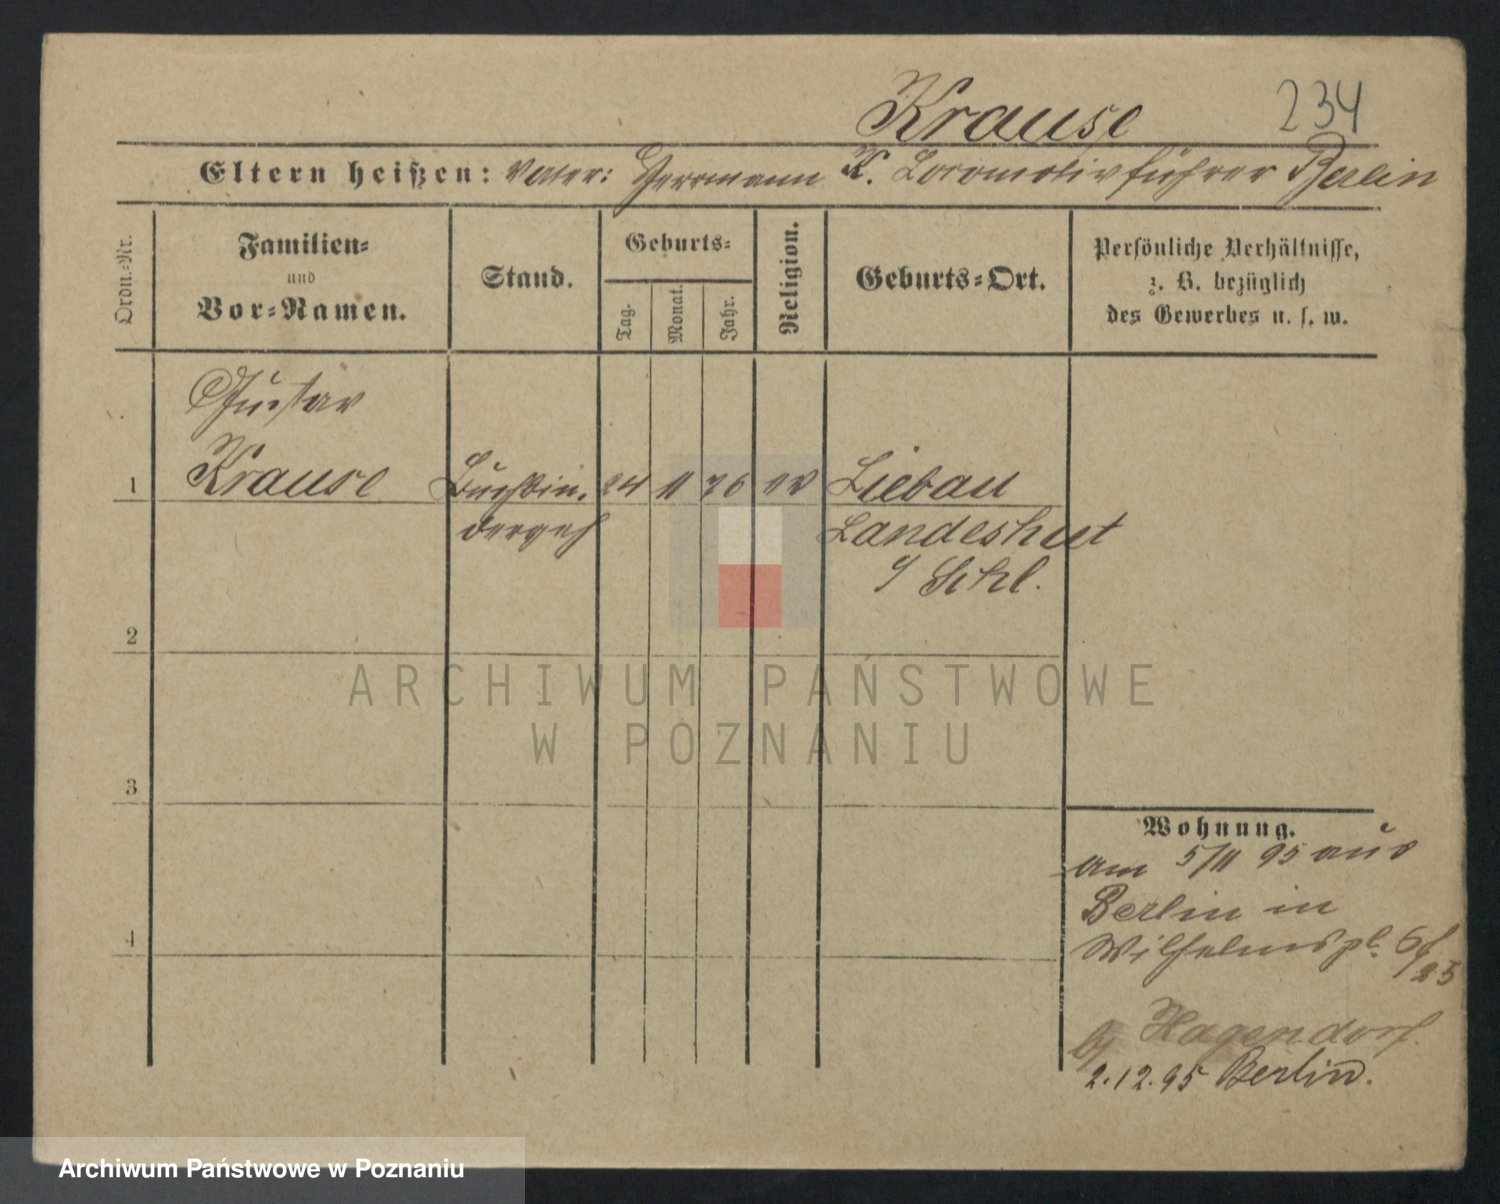 Krause 234
Eltern heißen: Vater: Herrmann K. Locomotivführer Berlin
Ordn.-Nr.
Familien-
und
Vor-Namen.
Stand.
Geburts-
Tag.
Monat.
Jahr.
Religion.
Geburts-Ort.
Persönliche Verhältnisse,
z. B. bezüglich
des Gewerbes u. s. w.
Gustav
1 Krause Buchbin. 24 11 76 ev Liebau
dergeh Landeshut
Schl.
2
3
4
ARCHIWUM PAŃSTWOWE
W POZNANIU
Wohnung.
am 5/11 95 aus
Berlin in
Wilhelmspl. 6
Hagendorf.
2.12.95 Berlin.
Archiwum Państwowe w Poznaniu